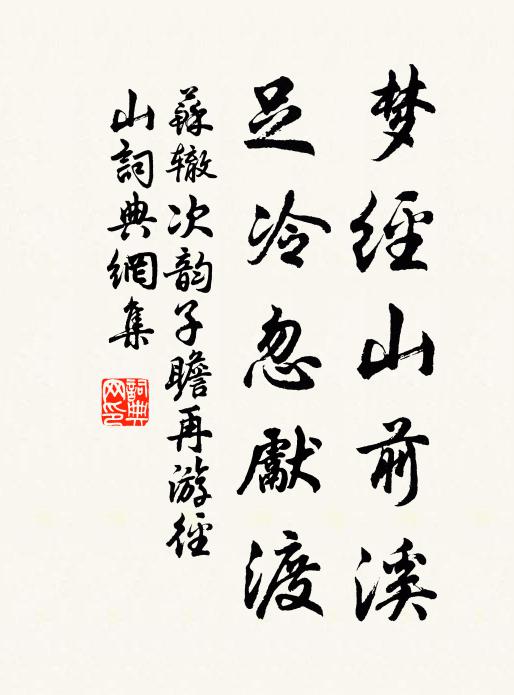 梦經山前溪
足冷忽獻渡
蘇辙次韵子瞻再游徑
山詞典網集
詞典网印